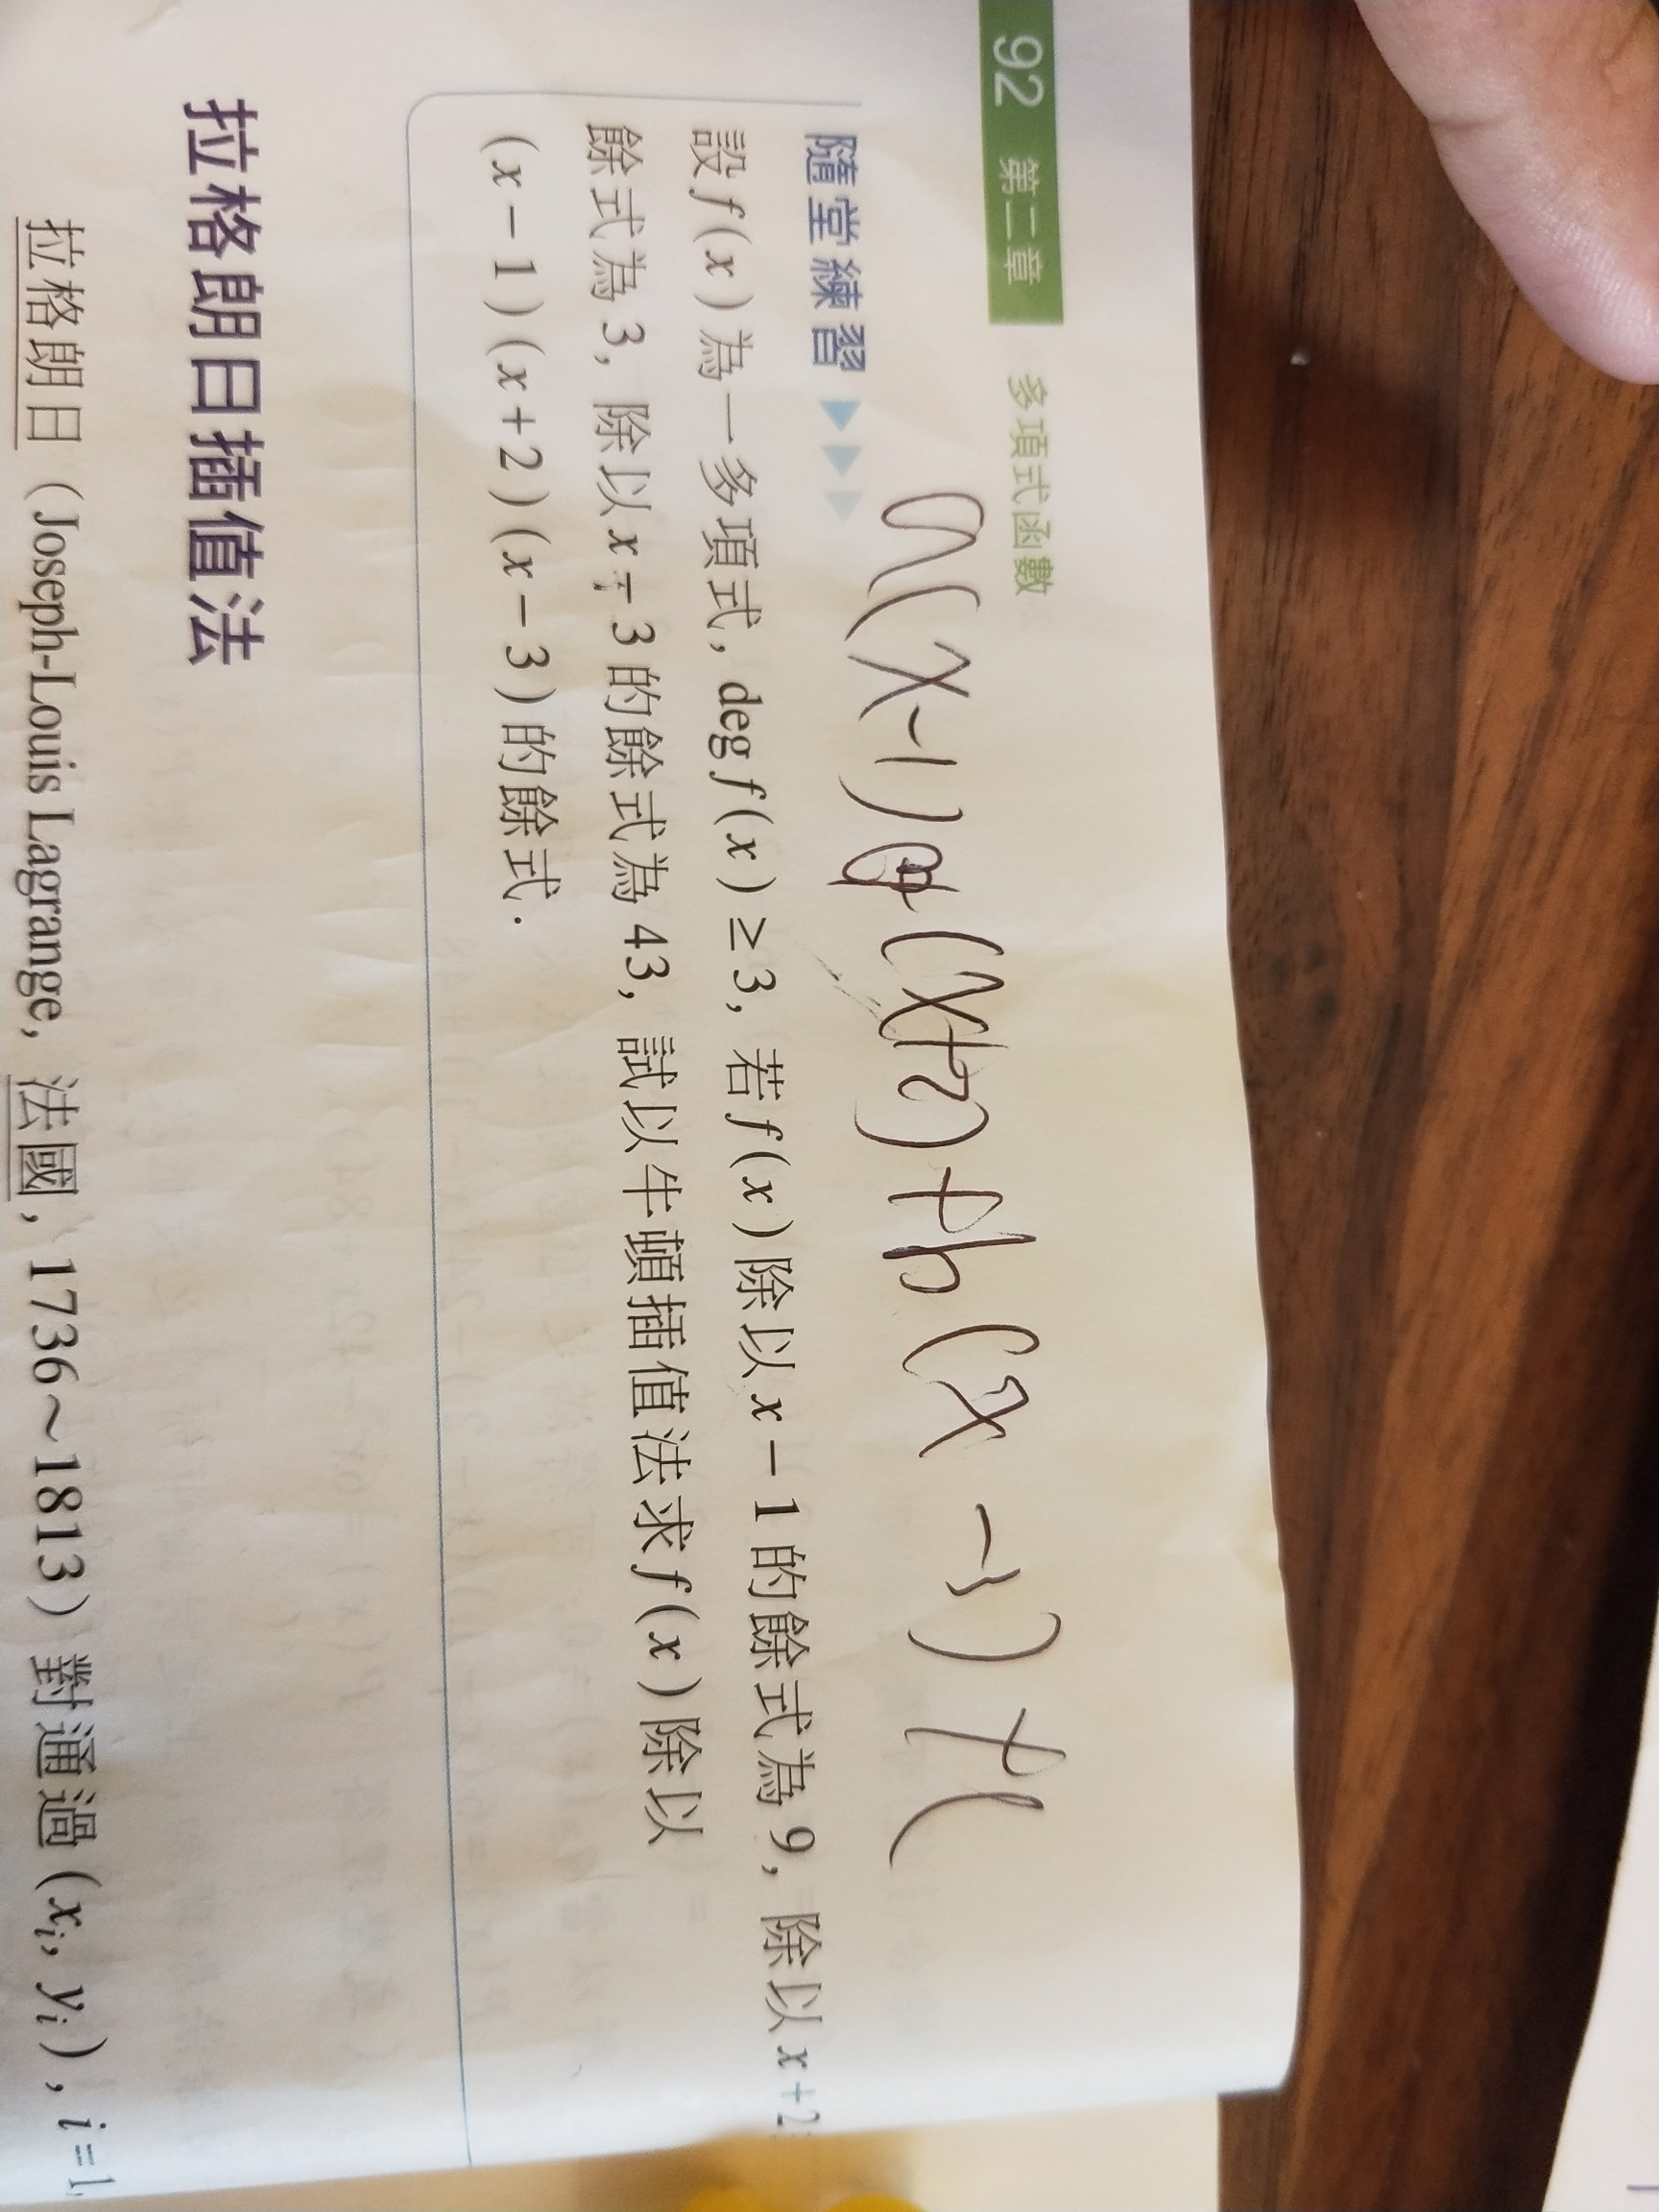 92 第二章 多項式函數
a(x-1)(x+2)+b(x-1)+c
隨堂練習
設f(x)為一多項式, deg f(x)≥3, 若f(x)除以x-1的餘式為9, 除以x+2
餘式為3, 除以x-3的餘式為43, 試以牛頓插值法求f(x)除以
(x-1)(x+2)(x-3)的餘式.
拉格朗日插值法
拉格朗日(Joseph-Louis Lagrange, 法國, 1736~1813)對通過(xi, yi), i=1,